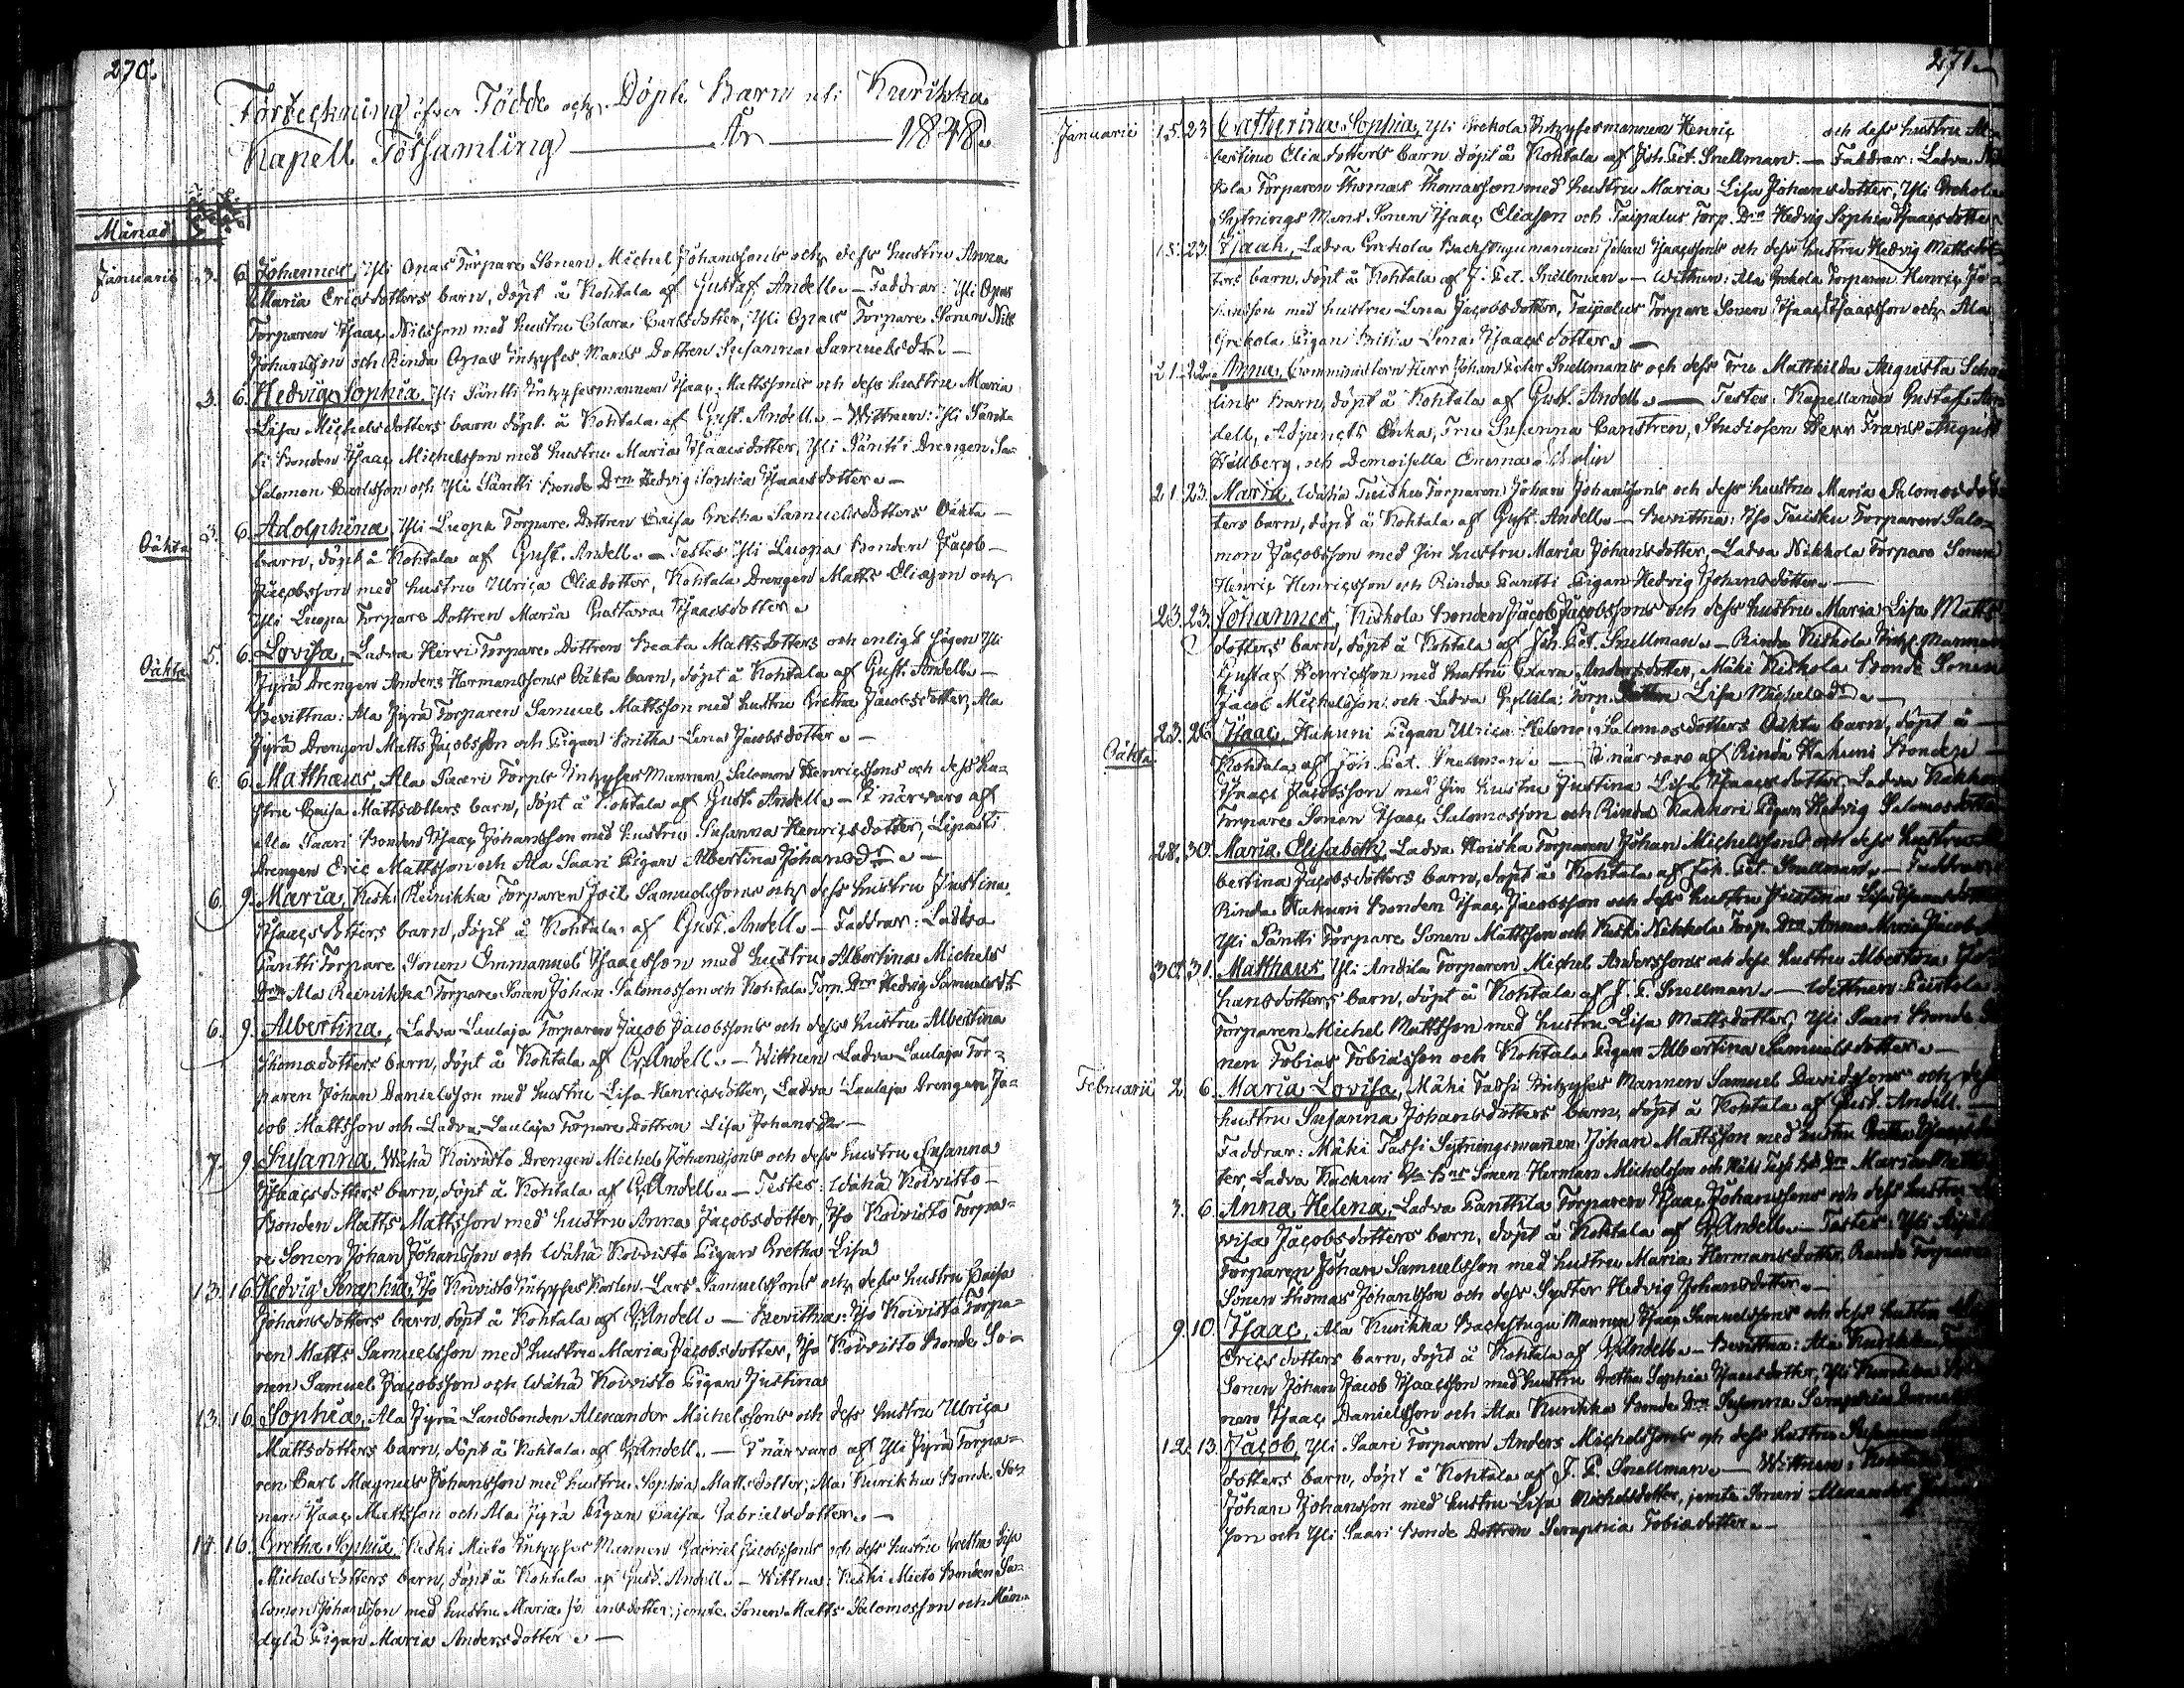 270.
Förteckning öfver Födde och Döpte Barn uti Kurikka
Kapell Församling År 1848.
Månad
Januarii 3. 6. Johannes, Yli Opas Torpare Sonen Michel Johanssons och dess hustru Anna
Maria Ericsdotters barn, döpt å Kohtala af Gustaf Andell. — Faddrar: Yli Opas
Torparen Isaac Nilsson med hustru Clara Carlsdotter, Yli Opas Torpare Sonen Nils
Johansson och Rinda Opas Inhyses Mans Dottren Susanna Samuelsdr. —
3. 6. Hedvig Sophia, Yli Säntti Inhysesmannen Isaac Mattssons och dess hustru Maria
Lisa Michelsdotters barn döpt å Kohtala af Gust. Andell. — Wittnen: Yli Sänt-
ti Bonden Isaac Michelsson med hustru Maria Isaacsdotter, Yli Säntti Drengen Sa-
Salomon Carlsson och Yli Säntti Bonde Drn Hedvig Sophia Isaacsdotter. —
Oäkta 3. 6. Adolphina, Yli Luopa Torpare Dottren Caisa Gretha Samuelsdotters Oäkta —
barn, döpt å Kohtala af Gust. Andell. — Testes: Yli Luopa Bonden Jacob
Jacobsson med hustru Ulrica Eliædotter, Kohtala Drengen Matts Eliasson och
Yli Luopa Torpare Dottren Maria Gustava Isaacsdotter.
Oäkta 5. 6. Lovisa, Ladva Hirvi Torpare Dottren Beata Mattsdotters och enligt sägen Yli
Jyrä Drengen Anders Hermanssons Oäkta barn, döpt å Kohtala af Gust. Andell. —
Bevittna: Ala Jyrä Torparen Samuel Mattsson med hustru Gretha Jacobsdotter, Ala
Jyrä Drengen Matts Jacobsson och Pigan Britha Lena Jacobsdotter. —
6. 6. Matthæus, Ala Saari Torps Inhyses Mannen Salomon Henricssons och dess hu-
stru Caisa Mattsdotters barn, döpt å Kohtala af Gust. Andell. — I närvaro af
Ala Saari Bonden Isaac Johansson med hustru Susanna Henricsdotter,
Drengen Eric Mattsson och Ala Saari Pigan Albertina Johansdr. —
6. 9. Maria, Keski Reinikka Torparen Joel Samuelssons och dess hustru Justina
Isaacsdotters barn, döpt å Kohtala af Gust. Andell. — Faddrar: Ladva
Pantti Torpare Sonen Emmanuel Isaacsson med hustru Albertina Michels
Drn Ala Reinikka Torpare Sonen Johan Salomosson och Kohtala Torp. Drn Hedvig Samuelsdr.
6. 9. Albertina, Ladva Laulaja Torparen Jacob Jacobssons och dess hustru Albertina
Thomædotters barn, döpt å Kohtala af G. Andell. — Wittnen Ladva Laulaja Tor-
paren Johan Danielsson med hustru Lisa Henricsdotter, Ladva Laulaja Drengen Ja-
cob Mattsson och Ladva Laulaja Torpare Dottren Lisa Johansdr. —
7. 9. Susanna, Wähä Koivisto Drengen Michel Johanssons och dess hustru Susanna
Isaacsdotters barn, döpt å Kohtala af G. Andell. — Testes: Wähä Koivisto
Bonden Matts Mattsson med hustru Anna Jacobsdotter, Iso Koivisto Torpa-
re Sonen Johan Johansson och Wähä Koivisto Pigan Gretha Lisa
13. 16. Hedvig Seraphia, Iso Koivisto Inhyses Karlen Lars Samuelssons och dess hustru Caisa
Johansdotters barn, döpt å Kohtala af G. Andell. — Bevittna: Iso Koivisto Torpa-
ren Matts Samuelsson med hustru Maria Jacobsdotter, Iso Koivisto Bonde So-
nen Samuel Jacobsson och Wähä Koivisto Pigan Justina
13. 16. Sophia, Ala Jyrä Landbonden Alexander Michelssons och dess hustru Ulrica
Mattsdotters barn, döpt å Kohtala af G. Andell. — I närvaro af Yli Jyrä Torpa-
ren Carl Magnus Johansson med hustru Sophia Mattsdotter, Ala Kurikka Bonde So-
nen Isaac Mattsson och Ala Jyrä Pigan Caisa Gabrielsdotter. —
14. 16. Gretha Sophia, Keski Mieto Inhyses Mannen Gabriel Jacobssons och dess hustru Gretha Lisa
Michelsdotters barn, döpt å Kohtala af Gust. Andell. — Wittna: Keski Mieto Bonden Sa-
lomon Johansson med hustru Maria Johansdotter, jemte Sonen Matts Salomosson och Män-
dylä Pigan Maria Andersdotter. —
271.
Januarii 15. 23. Catharina Sophia, Yli Grekola Inhysesmannen Henric och dess hustru Al-
bertine Eliædotters barn döpt å Kohtala af Joh. Pet. Snellman. — Faddrar: Ladva
Torparen Thomas Thomasson med hustru Maria Lisa Johansdotter, Yli Grekola
Sytnings Mans Sonen Isaac Eliasson och Taipalus Torp. Drn Hedvig Sophia Isaacsdotter
15. 23. Isaak, Ladva Grekola Backstugumannen Johan Isaacssons och dess hustru Hedvig Mattsdot-
ters barn, döpt å Kohtala af J. Pet. Snellman. — Wittnen: Ala Grekola Torparen Henric Jo-
hansson med hustru Lena Jacobsdotter, Taipalus Torpare Sonen Isaac Isaacsson och Ala
Grekola Pigan Britha Lena Isaacsdotter. —
21. 22. Anna, Comministern Herr Johan Peter Snellmans och dess Fru Mathilda Augusta Scho-
lins Barn, döpt å Kohtala af Gust. Andell. — Testes: Kapellanen Gustaf An-
dell, Adjuncts Enka, Fru Susanna Castren, Studiosen Herr Frans August
Hällberg, och Demoiselle Emma Scholin
21. 23. Maria, Wähä Tuisku Torparen Johan Johanssons och dess hustru Maria Salomosdot-
ters barn, döpt å Kohtala af Gust. Andell. — Bevittna: Iso Tuisku Torparen Salo-
mon Jacobsson med sin hustru Maria Johansdotter, Ladva Nikkola Torpare Sonen
Henric Henricsson och Rinda Pantti Pigan Hedvig Johansdotter. —
23. 23. Johannes, Niskola Bonden Jacob Jacobssons och dess hustru Maria Lisa Matts-
dotters barn, döpt å Kohtala af Joh. Pet. Snellman. — Rinda Niskola Inhys. Mannen
Gustaf Henricsson med hustru Clara Andersdotter, Mäki Niskola Bonde Sonen
Jacob Michelsson och Ladva Torp. Lisa Michelsdr. —
Oäkta 23. 26. Isaac, Hakuni Pigan Ulrica Helena Salomosdotters Oäkta barn, döpt å —
Kohtala af Joh. Pet. Snellman. — I närvaro af Rinda Hakuni Bonden
Isaac Jacobsson med sin hustru Justina Lisa Isaacsdotter, Ladva
Torpare Sonen Isaac Salomosson och Rinda Pigan Hedvig Salomosdotter
28. 30. Maria Elisabeth, Ladva Torparen Johan Michelssons och dess hustru Al-
bertina Jacobsdotters barn, döpt å Kohtala af Joh. Pet. Snellman. — Faddrar
Rinda Hakuni Bonden Isaac Jacobsson och dess hustru Justina Lisa
Yli Säntti Torpare Sonen Mattsson och Keski Nikkola Torp. Drn Anna Maria
30. 31. Matthæus, Yli Andila Torparen Michel Anderssons och dess hustru Albertina Jo-
hansdotters barn, döpt å Kohtala af J. P. Snellman. — Wittnen:
Torparen Michel Mattsson med hustru Lisa Mattsdotter, Yli Saari Bonde So-
nen Tobias Tobiasson och Kohtala Pigan Albertina Samuelsdotter. —
Februarii 2. 6. Maria Lovisa, Mäki Inhyses Mannen Samuel Davidssons och dess
hustru Susanna Johansdotters barn, döpt å Kohtala af Gust. Andell. —
Faddrar: Mäki Sytningsmannen Johan Mattsson med hustru
ter, Ladva Sonen Herman Michelsson och
3. 6. Anna Helena, Ladva Panttila Torparen Isaac Johanssons och dess hustru Lo-
visa Jacobsdotters barn, döpt å Kohtala af G. Andell. — Testes: Yli
Torparen Johan Samuelsson med hustru Maria Hermansdotter, Torpare
Sonen Thomas Johansson och dess Syster Hedvig Johansdotter. —
9. 10. Isaac, Ala Kurikka Backstugu Mannen Isaac Samuelssons och dess hustru
Ericsdotters barn, döpt å Kohtala af G. Andell. — Bevittna: Ala Kurikka
Sonen Johan Jacob Isaacsson med hustru Gretha Sophia Isaacsdotter, Yli Kurikka
nen Isaac Danielsson och Ala Kurikka Bonde Drn Susanna Seraphia
12. 13. Jacob, Yli Saari Torparen Anders Michelssons och dess hustru Susanna
dotters barn, döpt å Kohtala af J. P. Snellman. — Wittnen: Kohtala
Johan Johansson med hustru Lisa Michelsdotter, jemte Sonen Alexander
son och Yli Saari Bonde Dottren Seraphia Tobiædotter. —